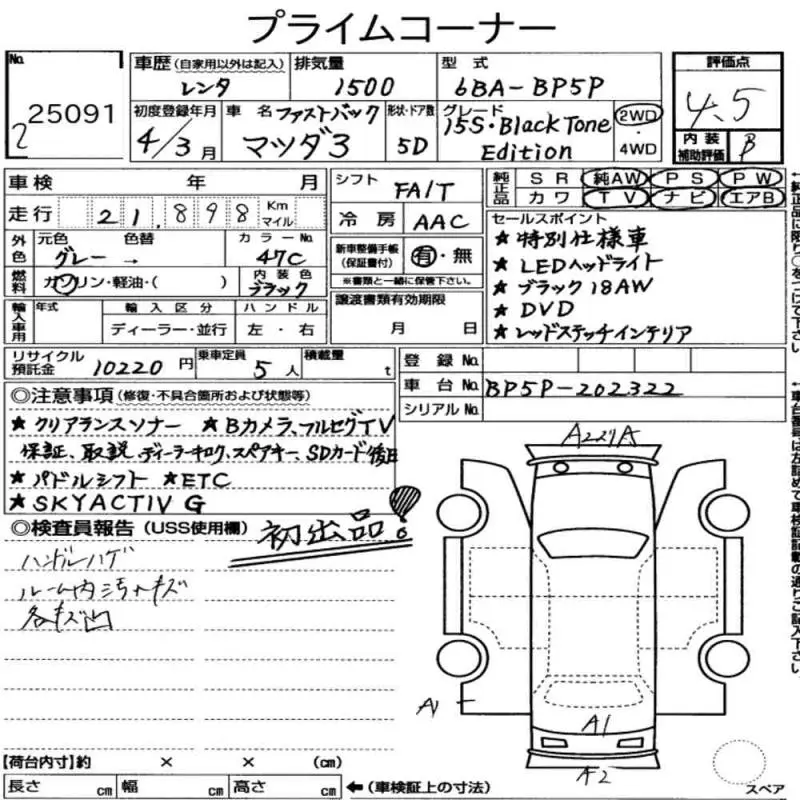 プライムコーナー
No.
25091
2
車歴 (自家用以外は記入)
レンタ
排気量
1500
型式
6BA-BP5P
評価点
4.5
内装
補助評価
B
初度登録年月
4/3月
車名
ファストバック
マツダ3
形状・ドア数
5D
グレード
15S・Black Tone
Edition
2WD
4WD
車検 年 月
走行 21,898 Km
マイル
シフト
FA/T
冷房
AAC
純正品
SR 純AW PS PW
カワ TV ナビ エアB
外色
元色 色替
グレー →
カラーNo.
47C
燃料
ガソリン・軽油・( )
内装色
ブラック
新車整備手帳
(保証書付)
有・無
※書類と一緒に保管下さい。
セールスポイント
★ 特別仕様車
★ LEDヘッドライト
★ ブラック18AW
★ DVD
★ レッドステッチインテリア
輸入車用
年式
輸入区分
ディーラー・並行
ハンドル
左・右
譲渡書類有効期限
月 日
リサイクル
預託金
10220 円
乗車定員
5 人
積載量
t
登録No.
車台No.
BP5P-202322
シリアルNo.
◎注意事項 (修復・不具合箇所および状態等)
★ クリアランスソナー ★ Bカメラ、フルセグTV
保証、取説、ディーラーキロク、スペアキー、SDカード後日
★ パドルシフト ★ ETC
★ SKYACTIV G
◎検査員報告 (USS使用欄)
初出品!
ハンドルハゲ
ルーム内汚れキズ
各キズ凹
A221A
A1
A1
A2
スペア
【荷台内寸】約 × × (cm)
長さ cm 幅 cm 高さ cm
← (車検証上の寸法)